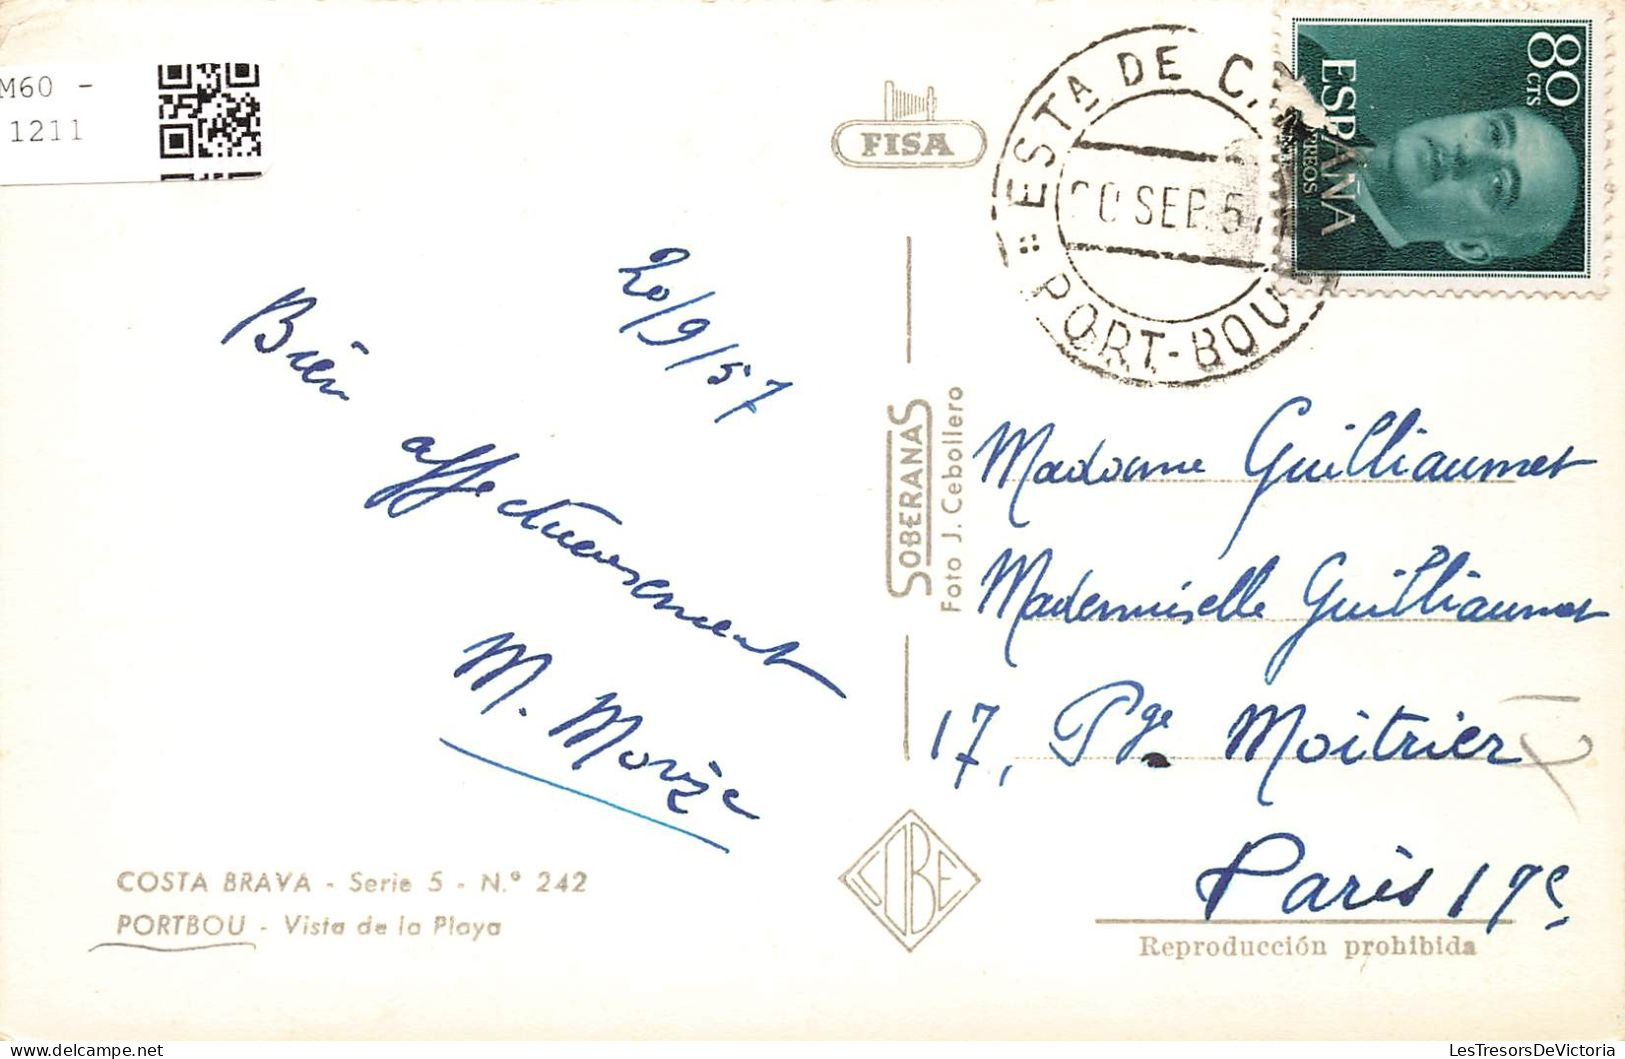 M60 -
1211
FISA
ESTA DE C.
20 SEP. 57
PORT-BOU
80 CTS
ESPAÑA
CORREOS
20/9/57
Bien
affectueusement
SOBERANAS
Foto J. Cebollero
Madame Guilliaumet
Mademoiselle Guilliaumet
17, Pge Moitrier
Paris 17e
COSTA BRAVA - Serie 5 - N.º 242
PORTBOU - Vista de la Playa
Reproducción prohibida
LesTresorsDeVictoria